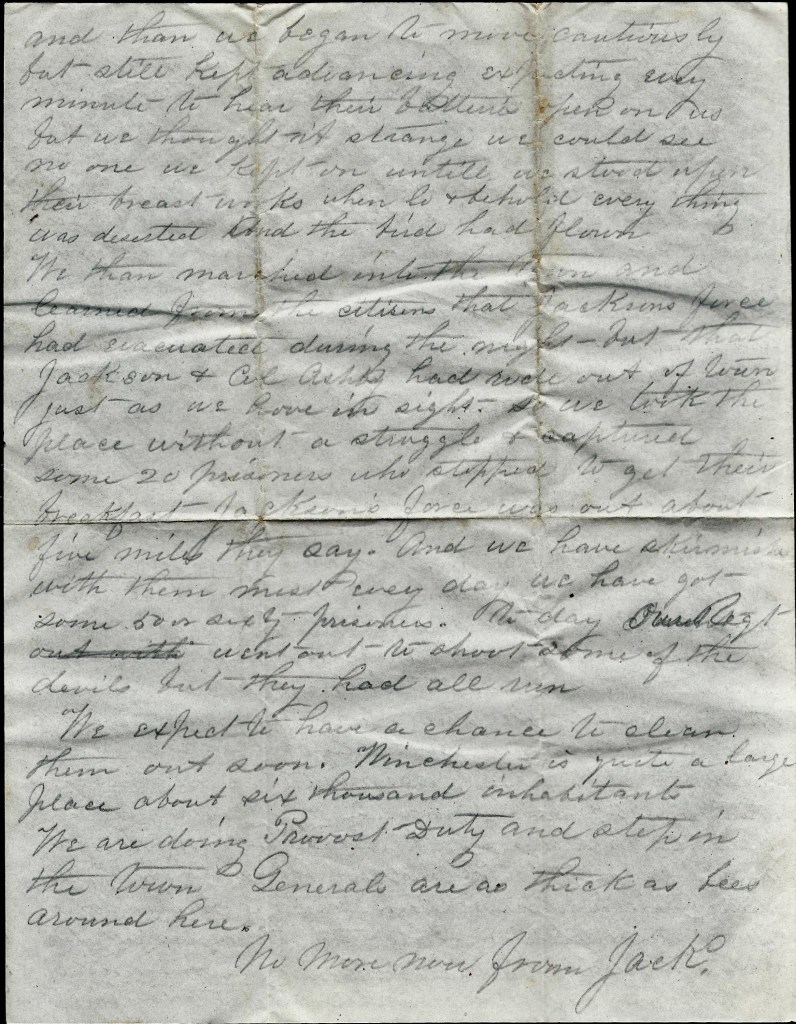 and than we began to move cautiously
but still kept advancing expecting evry
minute to hear their batterie open on us
but we thought it strange we could see
no one we kept on untill we stood upon
their breast works when lo & behold every thing
was deserted and the bird had flown
We than marched into the Town and
learned from the citisens that Jacksons force
had evacuated during the night - but that
Jackson & Col Ashby had rode out of Town
just as we hove in sight. so we took the
place without a struggle & captured
some 20 prisoners who stopped to get their
breakfast Jackson's force was out about
five miles they say. And we have skirmish
with them most evry day we have got
some 50 or sixty prisoners. To day Our Regt
out with went out to shoot some of the
devils but they had all run
We expect to have a chance to clean
them out soon. Winchester is quite a large
place about six thousand inhabitants
We are doing Provost Duty and stop in
the Town Generals are as thick as bees
around here.
No More now from Jack.